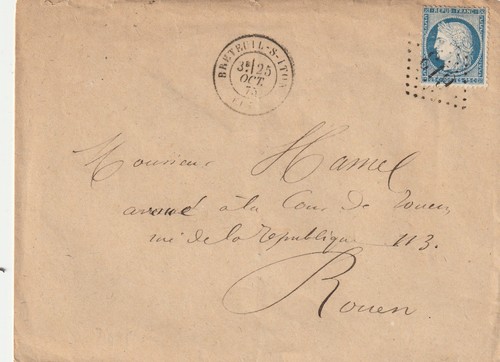 BRETEUIL-S-ITON
3E 25
OCT.
75
REPUB. FRANC.
Monsieur Hamel
avoué à la Cour de Rouen,
rue de la République 113.
Rouen